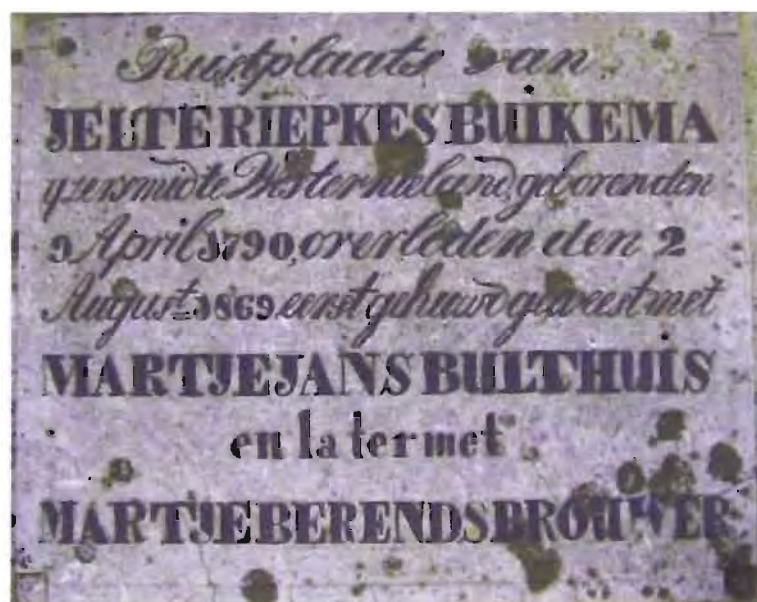 Rustplaats van
JELTE RIEPKES BUIKEMA
yzersmid te Westernieland, geboren den
9 April 1790, overleden den 2
August 1869 eerst gehuwd geweest met
MARTJE JANS BULTHUIS
en later met
MARTJE BERENDS BROUWER